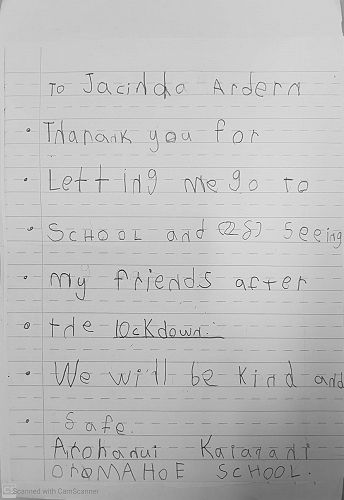 To Jacinda Ardern
Thank you for
Letting me go to
SCHOOL and (28) seeing
my friends after
the lockdown.
We will be kind and
safe.
Arohanui Kaiarahi
OROMAHOE SCHOOL.
Scanned with CamScanner